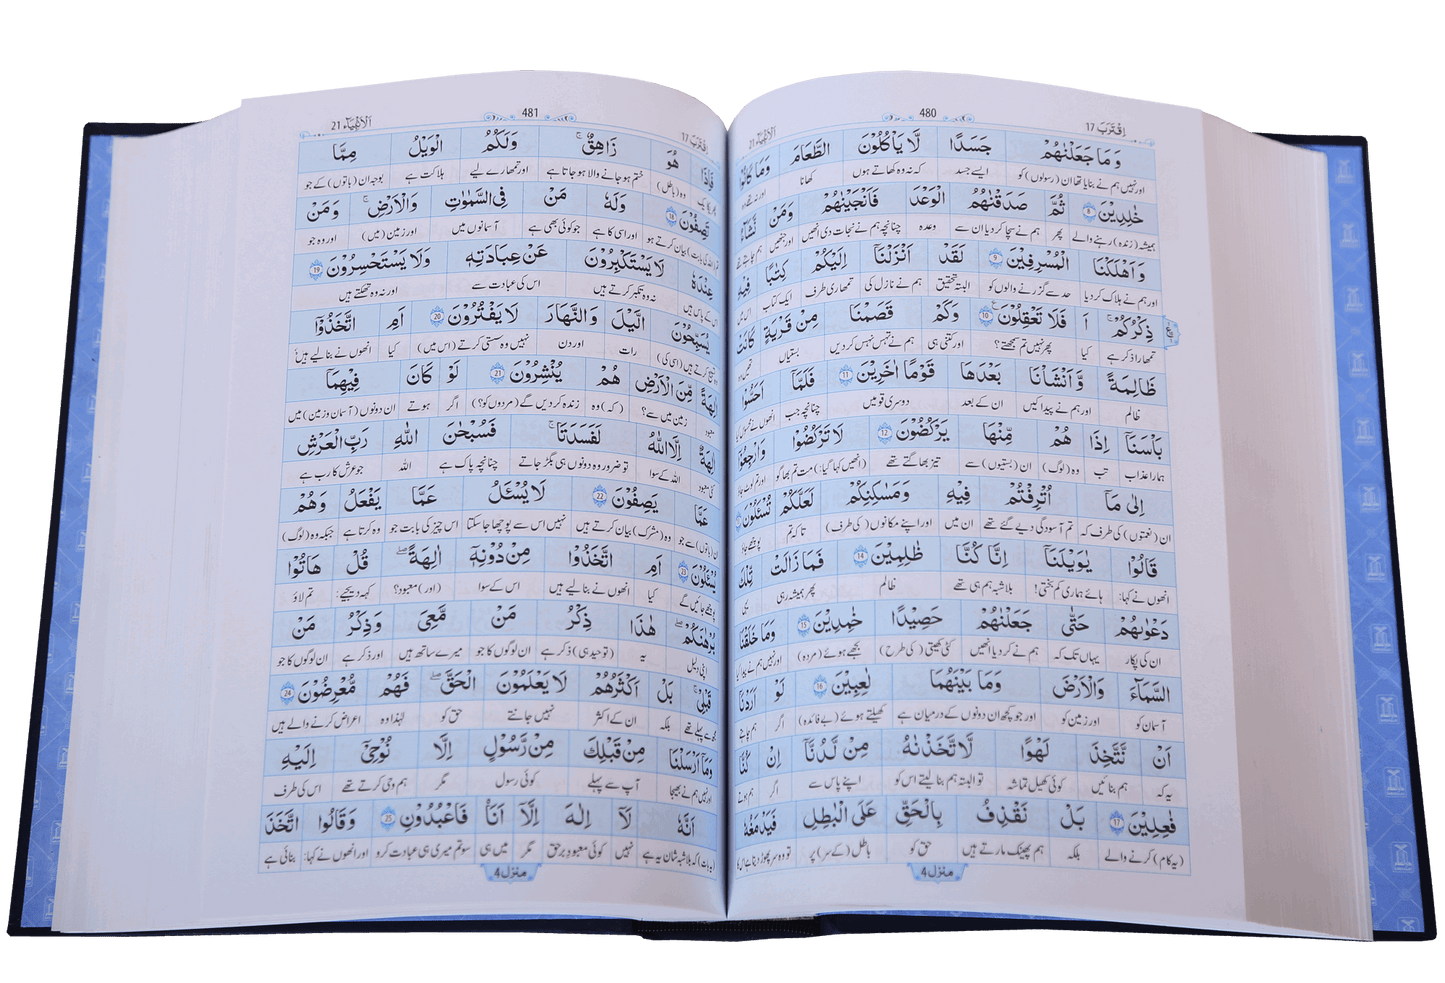 اِقْتَرَبَ 17
480
اَلْاَنْۢبِيَآء 21
وَ مَا جَعَلْنٰهُمْ جَسَدًا لَّا يَاْكُلُوْنَ الطَّعَامَ وَمَا كَانُوْا
اور نہیں ہم نے بنایا تھا ان (رسولوں) کو ایسے جسد کہ نہ وہ کھاتے ہوں کھانا
خٰلِدِيْنَ 8 ثُمَّ صَدَقْنٰهُمُ الْوَعْدَ فَاَنْجَيْنٰهُمْ وَمَنْ نَّشَآءُ
ہمیشہ (زندہ) رہنے والے پھر ہم نے سچا کر دیا ان سے وعدہ چنانچہ ہم نے نجات دی انھیں اور جنھیں ہم چاہتے تھے
وَ اَهْلَكْنَا الْمُسْرِفِيْنَ 9 لَقَدْ اَنْزَلْنَآ اِلَيْكُمْ كِتٰبًا فِيْهِ
اور ہم نے ہلاک کر دیا حد سے گزرنے والوں کو البتہ تحقیق ہم نے نازل کی تمھاری طرف ایک کتاب اس میں
ذِكْرُكُمْ ؕ اَ فَلَا تَعْقِلُوْنَ 10 وَكَمْ قَصَمْنَا مِنْ قَرْيَةٍ كَانَتْ
تمھارا ذکر ہے کیا پھر نہیں تم سمجھتے؟ اور کتنی ہی ہم نے تہس نہس کر دیں بستیاں
ظَالِمَةً وَّ اَنْشَاْنَا بَعْدَهَا قَوْمًا اٰخَرِيْنَ 11 فَلَمَّآ اَحَسُّوْا
ظالم اور ہم نے پیدا کیں ان کے بعد دوسری قومیں چنانچہ جب
بَاْسَنَآ اِذَا هُمْ مِّنْهَا يَرْكُضُوْنَ 12 لَا تَرْكُضُوْا وَارْجِعُوْٓا
ہمارا عذاب تب وہ (لوگ) ان (بستیوں) سے تیز بھاگتے تھے (انھیں کہا گیا:) مت تم بھاگو
اِلٰى مَآ اُتْرِفْتُمْ فِيْهِ وَمَسٰكِنِكُمْ لَعَلَّكُمْ تُسْئَلُوْنَ
ان (نعمتوں) کی طرف کہ تم آسودگی دیے گئے تھے ان میں اور اپنے مکانوں (کی طرف) تاکہ تم
قَالُوْا يٰوَيْلَنَآ اِنَّا كُنَّا ظٰلِمِيْنَ 14 فَمَا زَالَتْ تِّلْكَ
انھوں نے کہا: ہائے ہماری کم بختی! بلاشبہ ہم ہی تھے ظالم پھر ہمیشہ رہی
دَعْوٰىهُمْ حَتّٰى جَعَلْنٰهُمْ حَصِيْدًا خٰمِدِيْنَ 15 وَمَا خَلَقْنَا
ان کی پکار یہاں تک کہ ہم نے کر دیا انھیں کٹی کھیتی (کی طرح) بجھے ہوئے (مردہ)
السَّمَآءَ وَالْاَرْضَ وَمَا بَيْنَهُمَا لٰعِبِيْنَ 16 لَوْ اَرَدْنَآ
آسمان کو اور زمین کو اور جو کچھ ان دونوں کے درمیان ہے کھیلتے ہوئے (بے فائدہ) اگر ہم چاہتے
اَنْ نَّتَّخِذَ لَهْوًا لَّاتَّخَذْنٰهُ مِنْ لَّدُنَّآ اِنْ كُنَّا
یہ کہ ہم بنائیں کوئی کھیل تماشہ تو البتہ ہم بنا لیتے اس کو اپنے پاس سے اگر ہم ہوتے
فٰعِلِيْنَ 17 بَلْ نَقْذِفُ بِالْحَقِّ عَلَى الْبَاطِلِ فَيَدْمَغُهٗ
(یہ کام) کرنے والے بلکہ ہم پھینک مارتے ہیں حق کو باطل (کے سر) پر
منزل 4
اِقْتَرَبَ 17
481
اَلْاَنْۢبِيَآء 21
فَاِذَا هُوَ زَاهِقٌ ؕ وَلَكُمُ الْوَيْلُ مِمَّا
وہ (باطل) ختم ہو جانے والا ہو جاتا ہے اور تمھارے لیے ہلاکت ہے بوجہ ان (باتوں) کے جو
تَصِفُوْنَ 18 وَلَهٗ مَنْ فِى السَّمٰوٰتِ وَالْاَرْضِ ؕ وَمَنْ
بیان کرتے ہو اور اسی کا ہے جو کوئی بھی ہے آسمانوں میں اور زمین (میں) اور وہ جو
عِنْدَهٗ لَا يَسْتَكْبِرُوْنَ عَنْ عِبَادَتِهٖ وَلَا يَسْتَحْسِرُوْنَ 19
اس کے پاس ہیں نہ وہ تکبر کرتے ہیں اس کی عبادت سے اور نہ وہ تھکتے ہیں
يُسَبِّحُوْنَ الَّيْلَ وَالنَّهَارَ لَا يَفْتُرُوْنَ 20 اَمِ اتَّخَذُوْٓا
رات اور دن نہیں وہ سستی کرتے (اس میں) کیا انھوں نے بنا لیے ہیں
اٰلِهَةً مِّنَ الْاَرْضِ هُمْ يُنْشِرُوْنَ 21 لَوْ كَانَ فِيْهِمَآ
معبود زمین میں سے؟ (کہ) وہ زندہ کر دیں گے (مردوں کو؟) اگر ہوتے ان دونوں (آسمان و زمین) میں
اٰلِهَةٌ اِلَّا اللّٰهُ لَفَسَدَتَا ؕ فَسُبْحٰنَ اللّٰهِ رَبِّ الْعَرْشِ
کئی معبود اللہ کے سوا تو ضرور وہ دونوں ہی بگڑ جاتے چنانچہ پاک ہے اللہ جو عرش کا رب ہے
عَمَّا يَصِفُوْنَ 22 لَا يُسْئَلُ عَمَّا يَفْعَلُ وَهُمْ
ان (باتوں) سے جو وہ (مشرک) بیان کرتے ہیں نہیں اس سے پوچھا جا سکتا اس چیز کی بابت جو وہ کرتا ہے جبکہ وہ (لوگ)
يُسْئَلُوْنَ 23 اَمِ اتَّخَذُوْا مِنْ دُوْنِهٖٓ اٰلِهَةً ؕ قُلْ هَاتُوْا
پوچھے جائیں گے کیا انھوں نے بنا لیے ہیں اس کے سوا (اور) معبود؟ کہہ دیجیے: تم لاؤ
بُرْهَانَكُمْ ۚ هٰذَا ذِكْرُ مَنْ مَّعِىَ وَذِكْرُ مَنْ
اپنی دلیل یہ (توحید ہی) ذکر ہے ان لوگوں کا جو میرے ساتھ ہیں اور ذکر ہے ان لوگوں کا جو
قَبْلِىْ ؕ بَلْ اَكْثَرُهُمْ لَا يَعْلَمُوْنَ الْحَقَّ فَهُمْ مُّعْرِضُوْنَ 24
مجھ سے پہلے تھے بلکہ ان کے اکثر نہیں جانتے حق کو لہٰذا وہ اعراض کرنے والے ہیں
وَمَآ اَرْسَلْنَا مِنْ قَبْلِكَ مِنْ رَّسُوْلٍ اِلَّا نُوْحِىْٓ اِلَيْهِ
اور نہیں ہم نے بھیجا آپ سے پہلے کوئی رسول مگر ہم وحی کرتے تھے اس کی طرف
اَنَّهٗ لَآ اِلٰهَ اِلَّآ اَنَا فَاعْبُدُوْنِ 25 وَقَالُوا اتَّخَذَ
(یہ بات) کہ بلاشبہ شان یہ ہے نہیں کوئی معبود برحق مگر میں ہی سو تم میری ہی عبادت کرو اور انھوں نے کہا: بنائی ہے
منزل 4